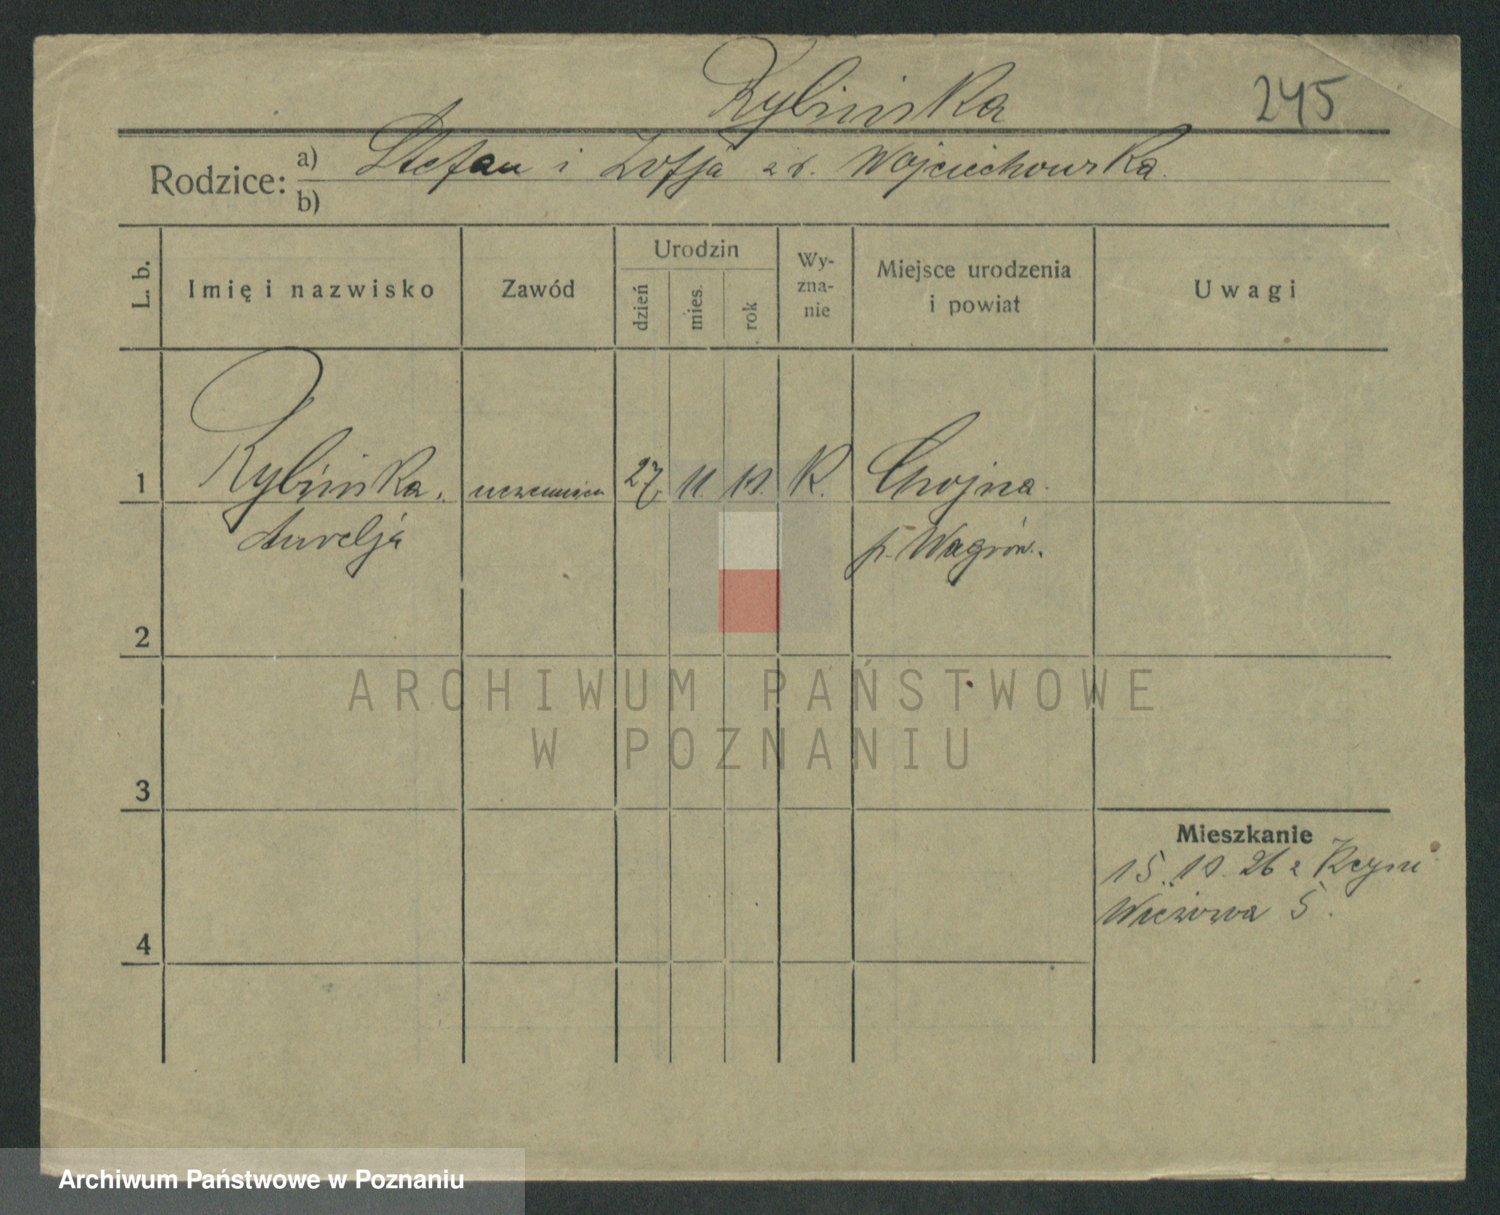 Rybińska
245
Rodzice: a) Stefan i Zofja z d. Wojciechowska.
b)
L. b.
Imię i nazwisko
Zawód
Urodzin
dzień
mies.
rok
Wy-
zna-
nie
Miejsce urodzenia
i powiat
Uwagi
1
Rybińska.
uczennica
27.
11.
10.
K.
Chojna.
Aurelja
p. Wągrów.
2
ARCHIWUM PAŃSTWOWE
W POZNANIU
3
Mieszkanie
15. 10. 26 z Kcyni
Wieżowa 5.
4
Archiwum Państwowe w Poznaniu